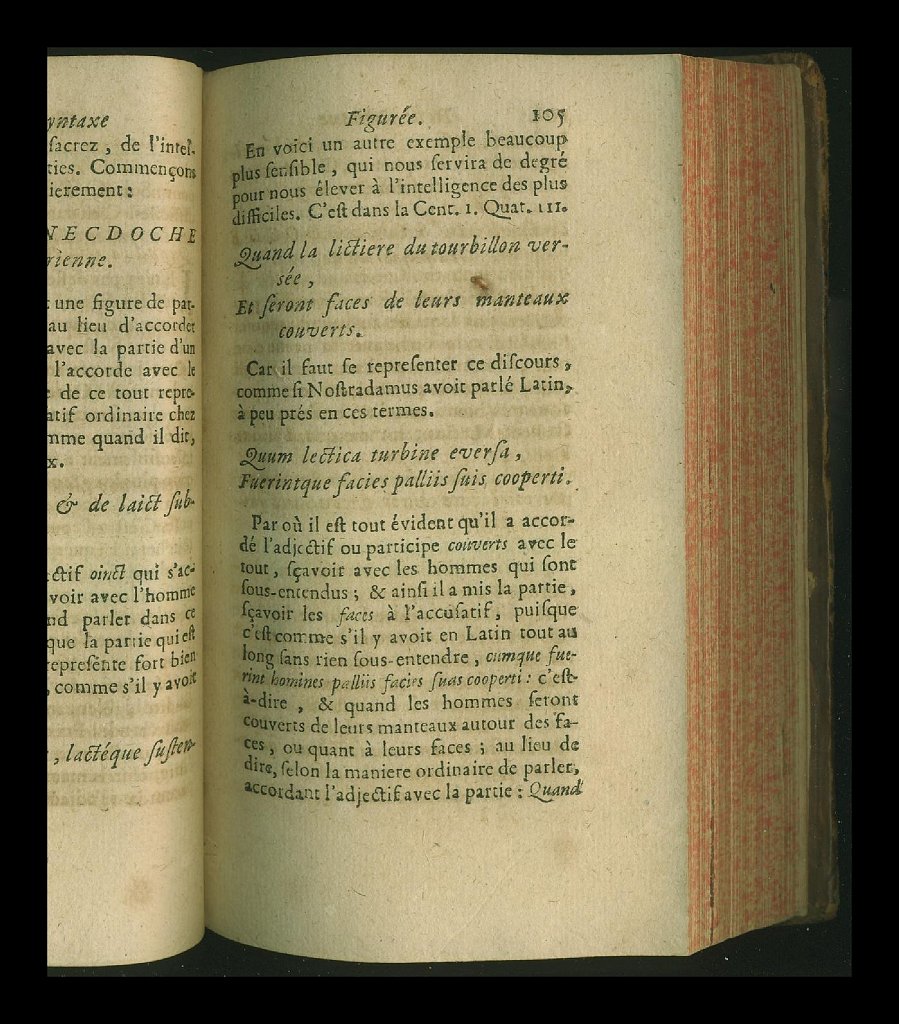 yntaxe
sacrez, de l'intel-
ties. Commençons
ierement:
NECDOCHE
rienne.
une figure de par-
au lieu d'accorder
avec la partie d'un
l'accorde avec le
de ce tout repre-
atif ordinaire chez
mme quand il dit,
x.
& de laict sub-
ctif oinct qui s'ac-
voir avec l'homme
nd parler dans ce
que la partie qui est
represente fort bien
, comme s'il y avoit
, lactéque susten-
Figurée. 105
En voici un autre exemple beaucoup
plus sensible, qui nous servira de degré
pour nous élever à l'intelligence des plus
difficiles. C'est dans la Cent. 1. Quat. III.
Quand la lictiere du tourbillon ver-
sée,
Et seront faces de leurs manteaux
couverts.
Car il faut se representer ce discours,
comme si Nostradamus avoit parlé Latin,
à peu prés en ces termes.
Quum lectica turbine eversa,
Fuerintque facies palliis suis cooperti.
Par où il est tout évident qu'il a accor-
dé l'adjectif ou participe couverts avec le
tout, sçavoir avec les hommes qui sont
sous-entendus; & ainsi il a mis la partie,
sçavoir les faces à l'accusatif, puisque
c'est comme s'il y avoit en Latin tout au
long sans rien sous-entendre, cumque fue-
rint homines palliis facies suas cooperti: c'est-
à-dire, & quand les hommes seront
couverts de leurs manteaux autour des fa-
ces, ou quant à leurs faces; au lieu de
dire, selon la maniere ordinaire de parler,
accordant l'adjectif avec la partie: Quand